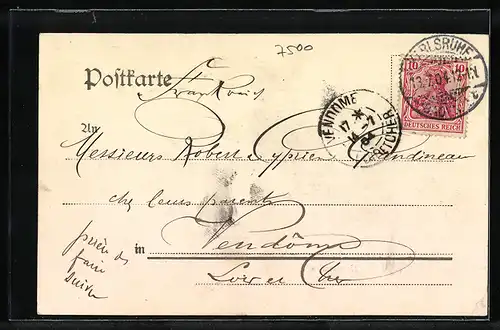 7500
Postkarte
Frankreich
An
Messieurs Robert & Cyprien
che leurs parents
in Vendôme
Loir et Cher
prière de
faire
suivre
KARLSRUHE
10 10
DEUTSCHES REICH
VENDOME
17
LOIR-ET-CHER